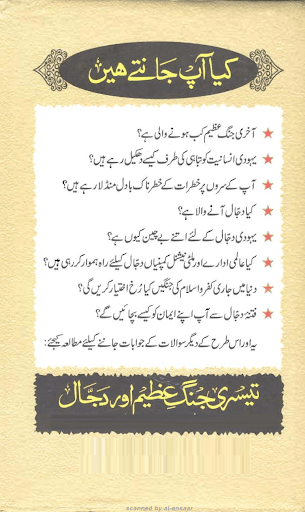 کیا آپ جانتے ھیں
آخری جنگ عظیم کب ہونے والی ہے؟
یہودی انسانیت کو تباہی کی طرف کیسے دھکیل رہے ہیں؟
آپ کے سروں پر خطرات کے خطرناک بادل منڈلا رہے ہیں؟
کیا دجّال آنے والا ہے؟
یہودی دجّال کے لئے اتنے بے چین کیوں ہے؟
کیا عالمی ادارے اور ملٹی نیشنل کمپنیاں دجّال کیلئے راہ ہموار کر رہی ہیں؟
دنیا میں جاری کفر و اسلام کی جنگیں کیا رُخ اختیار کریں گی؟
فتنۂ دجّال سے آپ اپنے ایمان کو کیسے بچائیں گے؟
یہ اور اس طرح کے دیگر سوالات کے جوابات جاننے کیلئے مطالعہ کیجئے:
تیسری جنگِ عظیم اور دجّال
scanned by al-ansaar